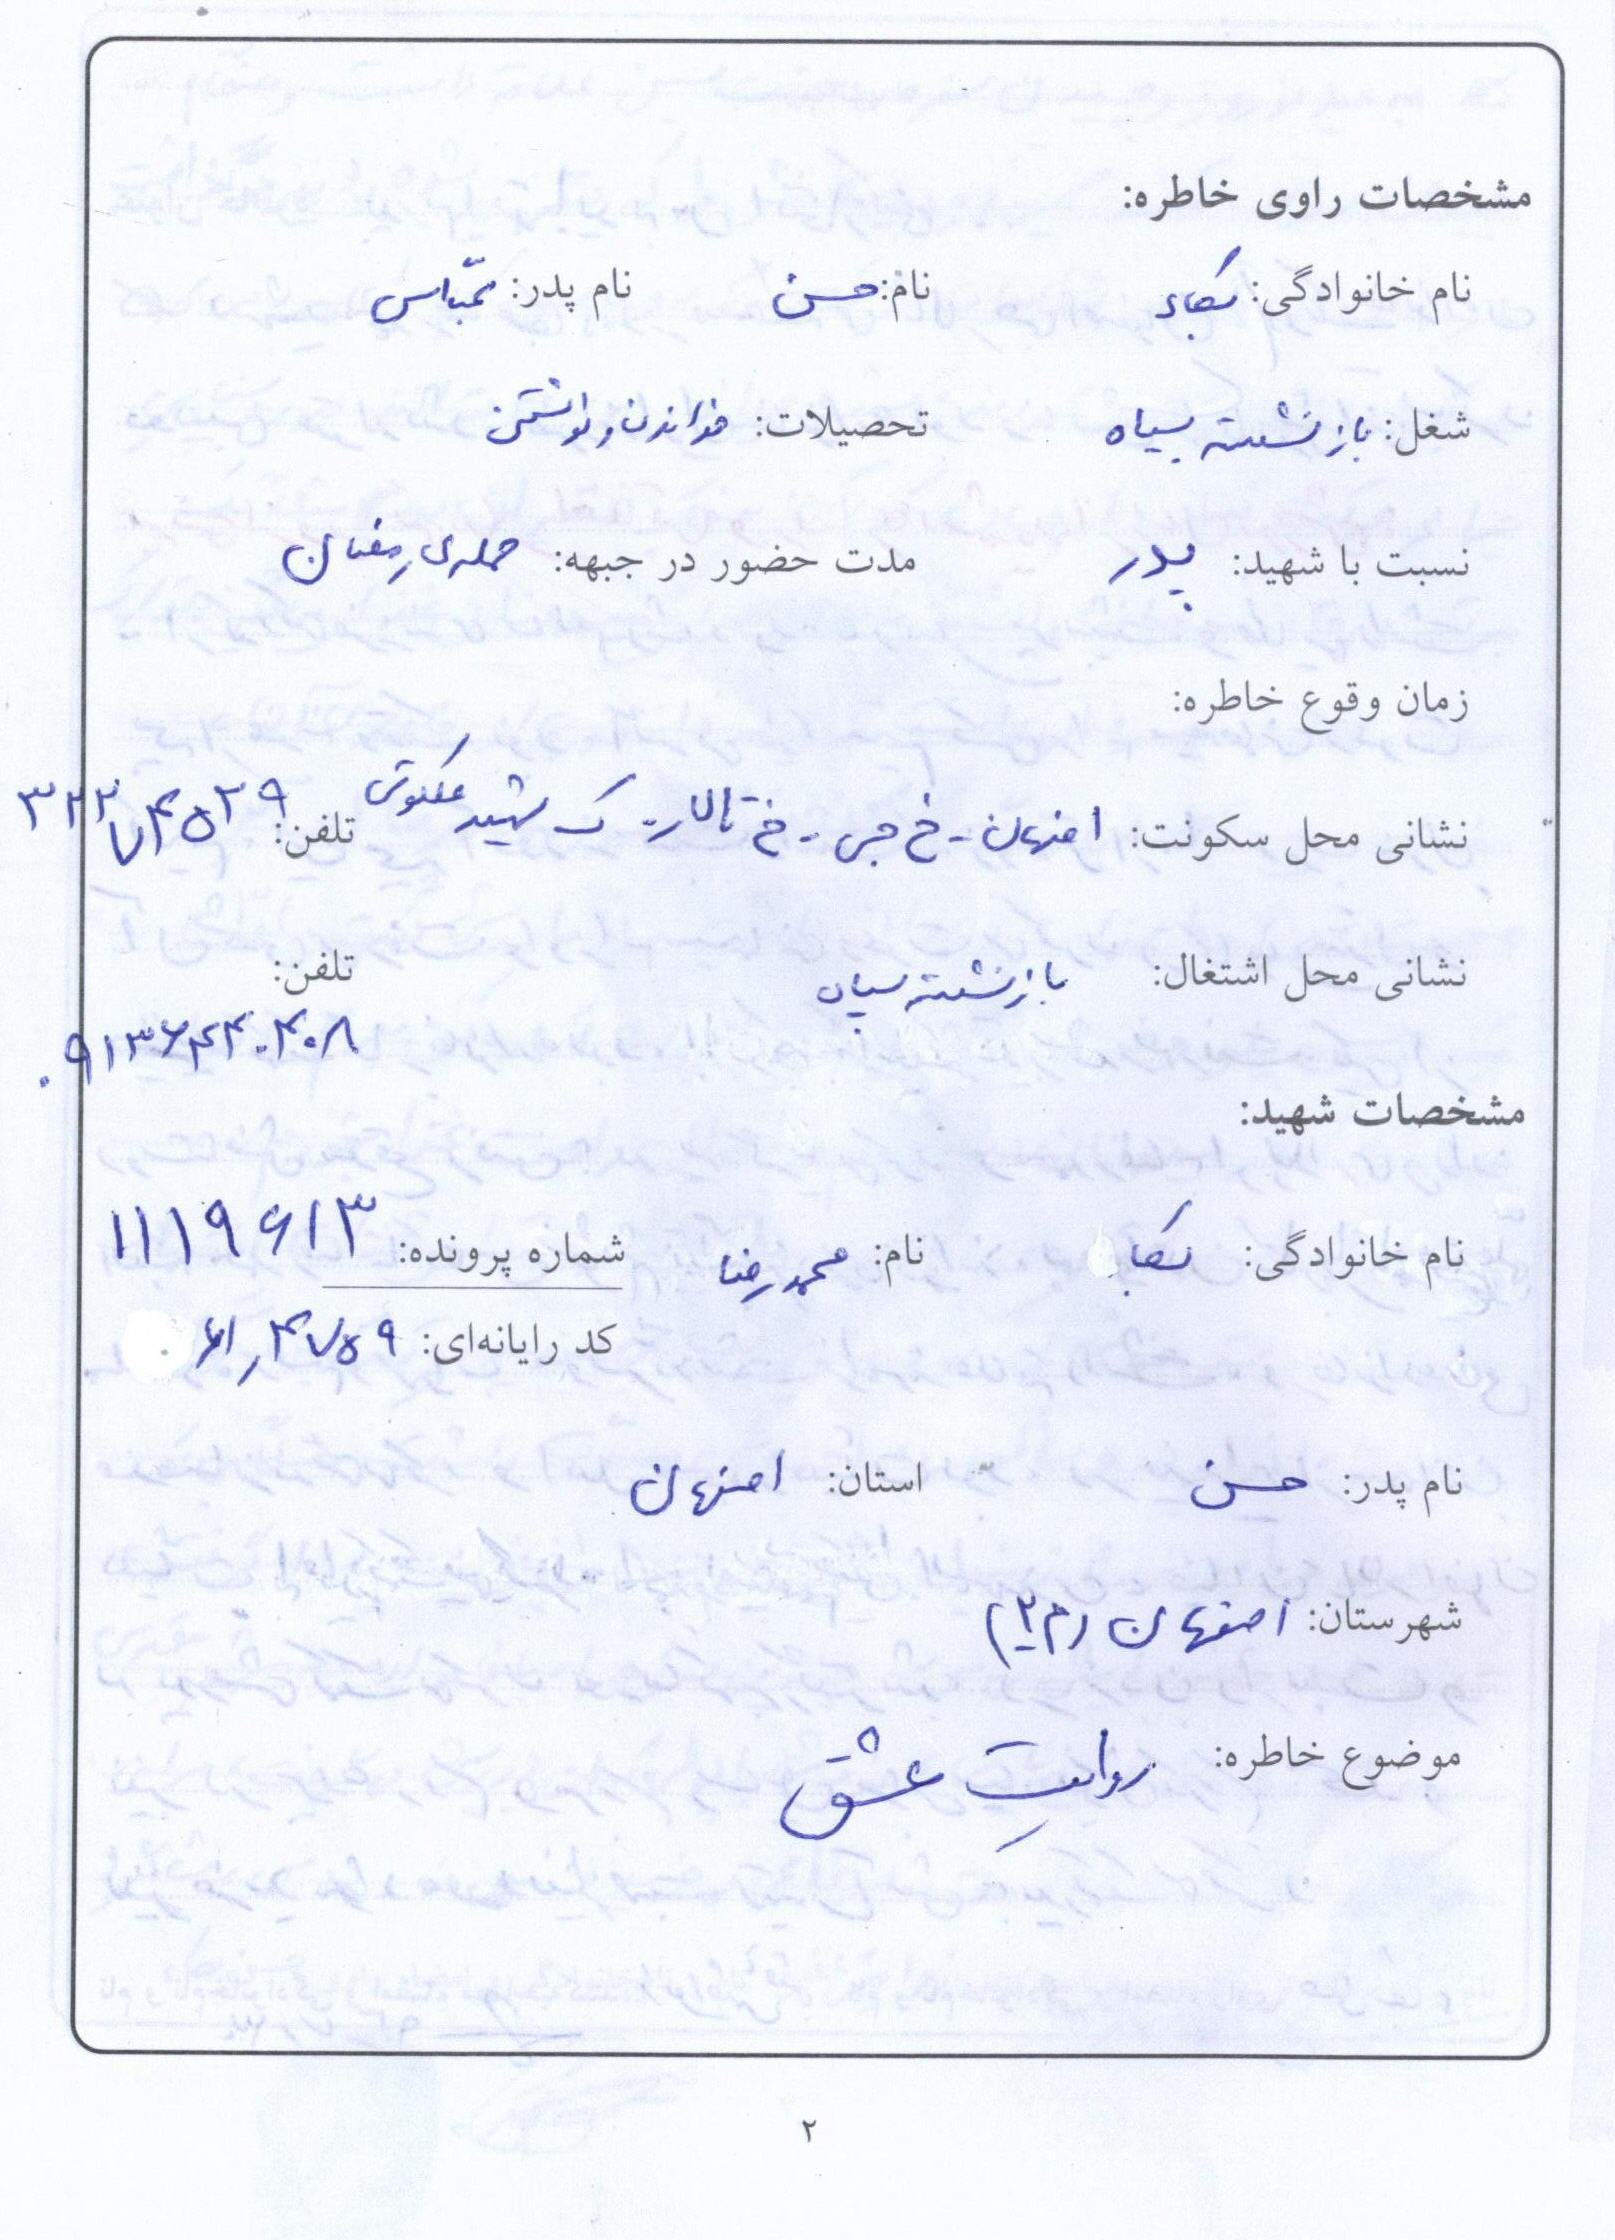 مشخصات راوی خاطره:
نام خانوادگی: نام: حسن نام پدر: عباس
شغل: بازنشسته سپاه تحصیلات: خواندن و نوشتن
نسبت با شهید: پدر مدت حضور در جبهه: حمله‌ی رمضان
زمان وقوع خاطره:
نشانی محل سکونت: اصفهان - خ جی - خ تالار - ک شهید ملکوتی تلفن: ۳۲۲۷۴۵۲۹
نشانی محل اشتغال: بازنشسته سپاه تلفن:
۰۹۱۳۶۴۴۰۴۰۸
مشخصات شهید:
نام خانوادگی: نام: محمدرضا شماره پرونده: ۱۱۱۹۶۱۳
کد رایانه‌ای:
نام پدر: حسن استان: اصفهان
شهرستان: اصفهان (م۲)
موضوع خاطره: روایتِ عشق
۲